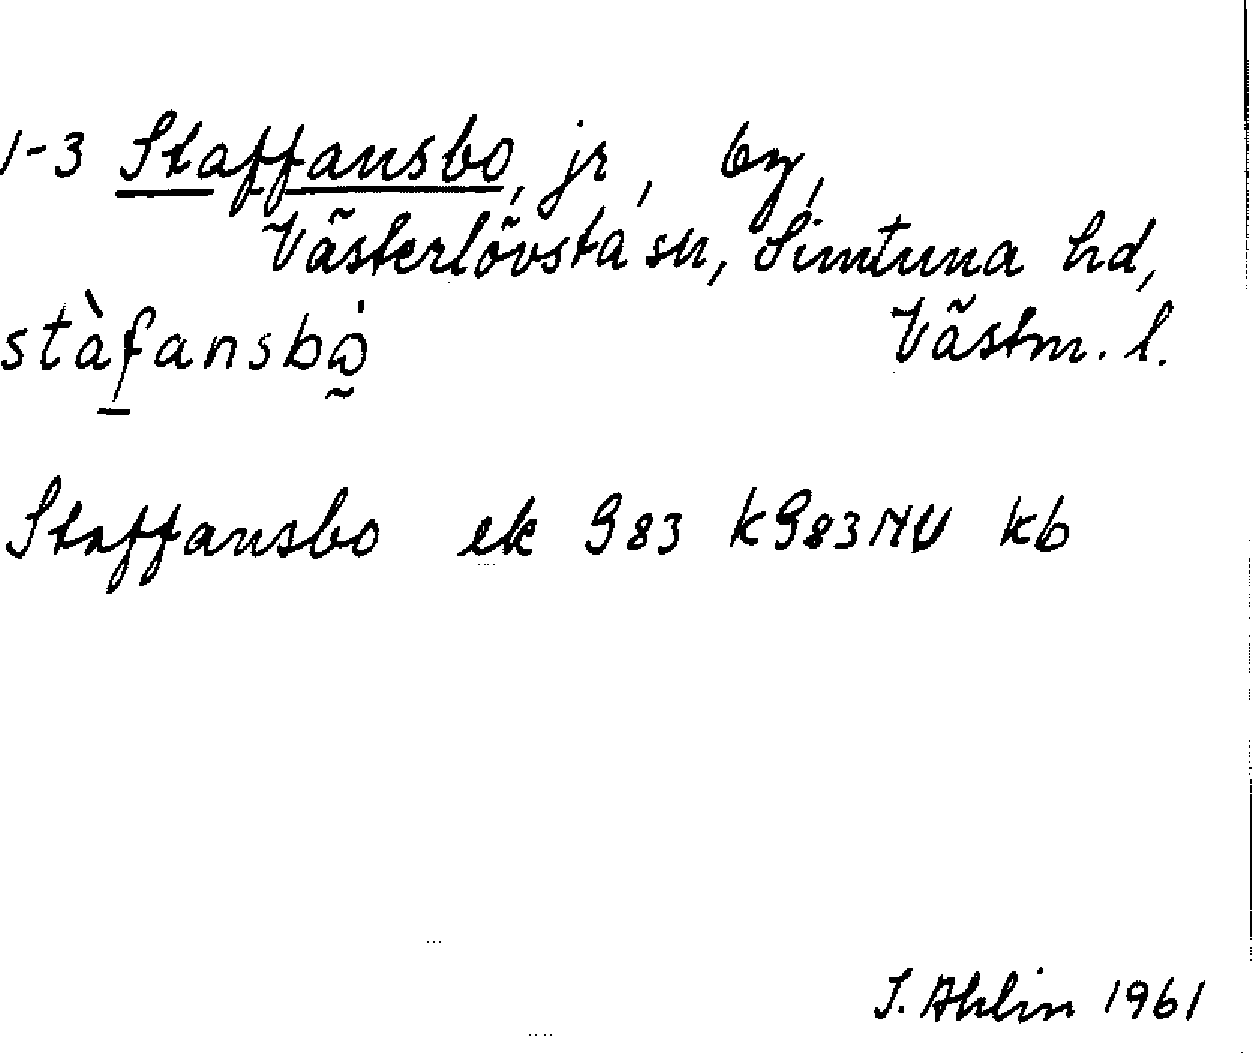 1-3 Staffansbo, jr, by,
Västerlövsta sn, Simtuna hd,
Västm. l.
stàfansbò̰
Staffansbo ek G83 KG83NV kb
I. Ahlin 1961